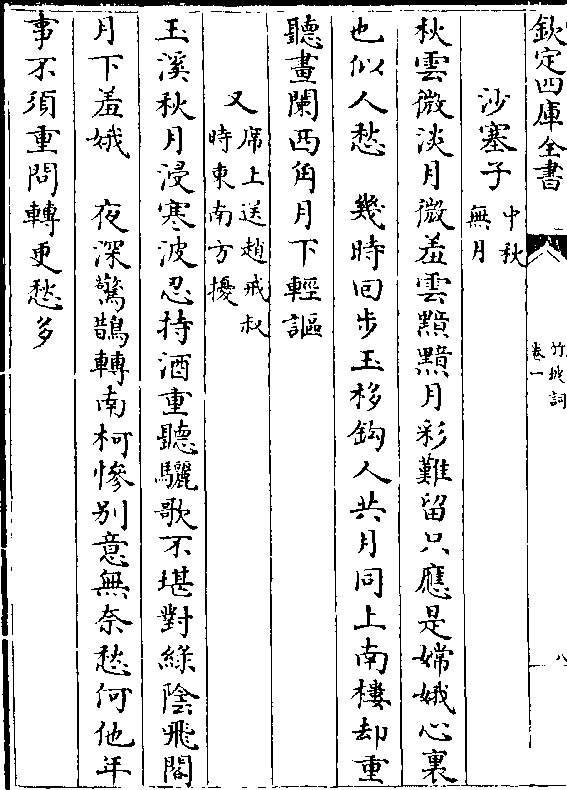 欽定四庫全書
竹坡詞
卷一
八
沙塞子
中秋
無月
秋雲微淡月微羞雲黯黯月彩難留只應是嫦娥心裏
也似人愁　幾時回步玉移鈎人共月同上南樓却重
聽畫闌西角月下輕謳
又
席上送趙戒叔
時東南方擾
玉溪秋月浸寒波忍持酒重聽驪歌不堪對綠陰飛閣
月下羞娥　夜深驚鵲轉南柯慘别意無奈愁何他年
事不須重問轉更愁多